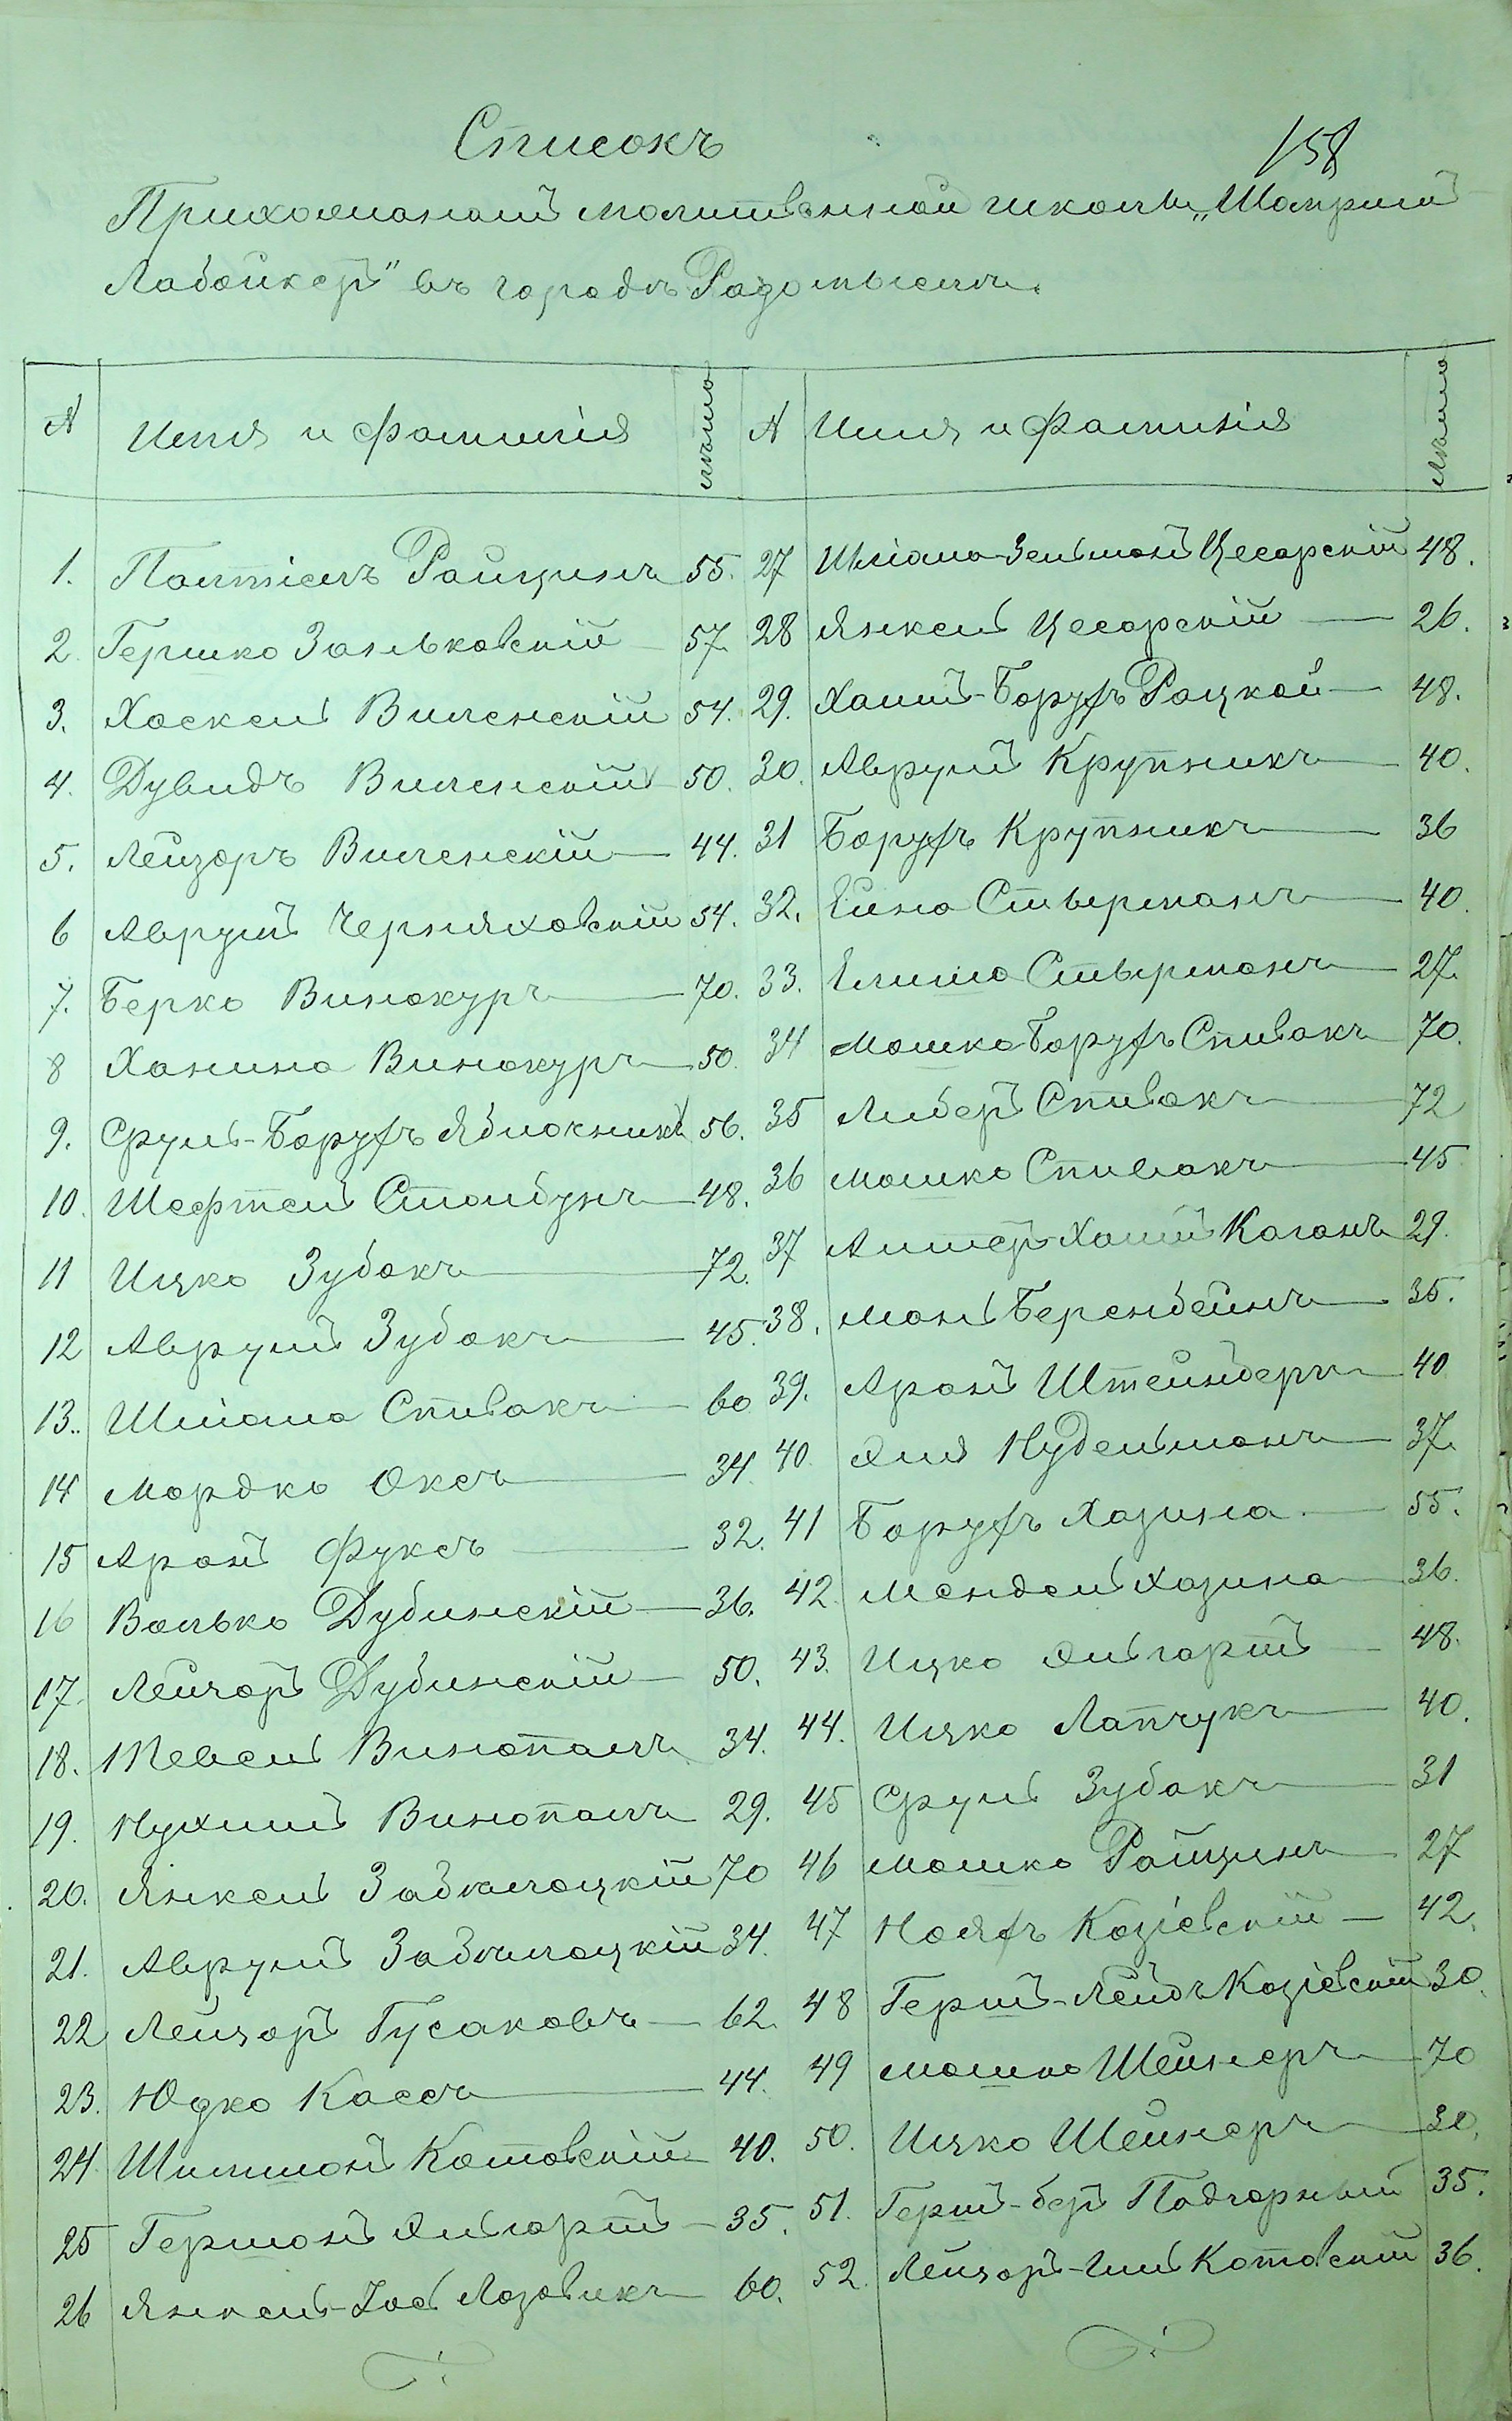 158
Списокъ
Прихожанамъ молитвенной школы „Шомримъ
Лабойкер" въ городѣ Радомыслѣ.
№ Имя и фамилія лѣта
1. Палтіелъ Райцинъ 55.
2. Гершко Зальковскій 57.
3. Хаскель Виленскій 54.
4. Дувидъ Виленскій 50.
5. Лейзоръ Виленскій 44.
6 Аврумъ Черняховскій 54.
7. Берко Винокуръ 70.
8 Ханина Винокуръ 50.
9. Сруль-Борухъ Яблочникъ 56.
10. Шефтель Столбунъ 48.
11 Ицко Зубокъ 72.
12 Аврумъ Зубокъ 45.
13. Шліома Спивакъ 60
14 Мордко Оксъ 34.
15 Аронъ Фуксъ 32.
16 Волько Дубинскій 36.
17. Лейзоръ Дубинскій 50.
18. Тевель Винопалъ 34.
19. Нухимъ Винопалъ 29.
20. Янкель Забилоцкій 70
21. Аврумъ Забилоцкій 34.
22 Лейзоръ Гусаковъ 62.
23. Юдко Кассъ 44.
24 Шиммонъ Котовскій 40.
25 Гершонъ Эльгортъ 35.
26 Янкель-Іосъ Лозовикъ 60.
№ Имя и фамилія Лѣта
27 Шліома-Зельманъ Цесарскій 48.
28 Янкель Цесарскій 26.
29. Хаимъ-Борухъ Рацкой 48.
30. Аврумъ Крупникъ 40.
31 Борухъ Крупникъ 36
32. Ейна Стырманъ 40.
33. Елиша Стырманъ 27.
34 Мошко-Борухъ Спивакъ 70.
35 Либеръ Спивакъ 72
36 Мошко Спивакъ 45
37 Алтеръ-Хаимъ Каганъ 29.
38. Мань Беренбеймъ 35.
39. Аронъ Штейнберъ 40
40. Эля Нудельманъ 37.
41 Борухъ Хазина 55.
42. Мендель Хазина 36.
43. Ицко Эльгортъ 48.
44. Ицко Лапчукъ 40.
45 Сруль Зубокъ 31
46 Мошко Райцинъ 27
47 Нояхъ Козіевскій 42.
48 Герш-Лейбъ Козіевскій 30.
49 Мошко Шейнеръ 70
50. Ицко Шейнеръ 30.
51. Герш-беръ Подгорный 35.
52. Лейзоръ-Лип Котовскій 36.